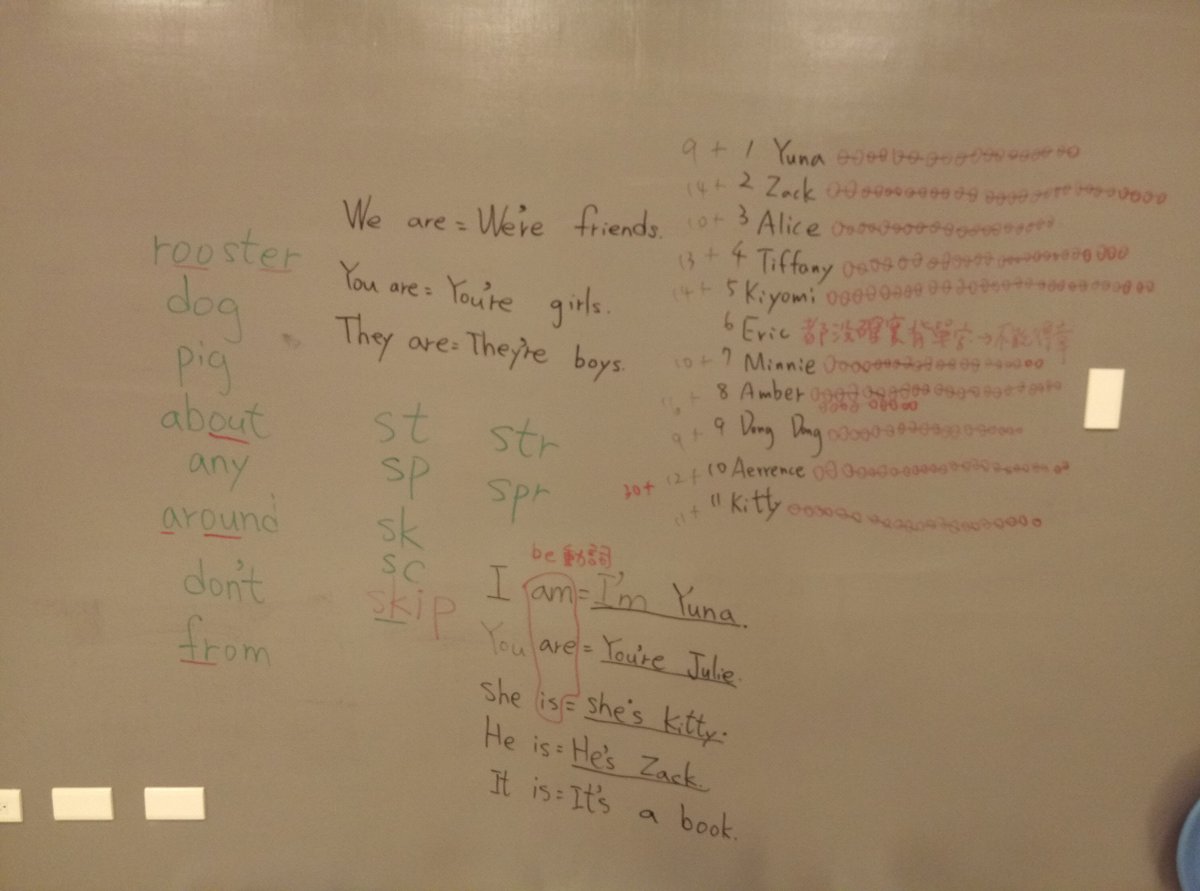 rooster
dog
pig
about
any
around
don't
from
We are = We're friends.
You are = You're girls.
They are = They're boys.
st
sp
sk
sc
skip
str
spr
be動詞
I am = I'm Yuna.
You are = You're Julie.
she is = she's kitty.
He is = He's Zack.
It is = It's a book.
9 + 1 Yuna
14 + 2 Zack
10 + 3 Alice
13 + 4 Tiffany
14 + 5 Kiyomi
6 Eric 都沒確實背單字→不能得章
10 + 7 Minnie
+ 8 Amber
9 + 9 Dong Dong
30+ 12 + 10 Aerrence
11 + 11 Kitty